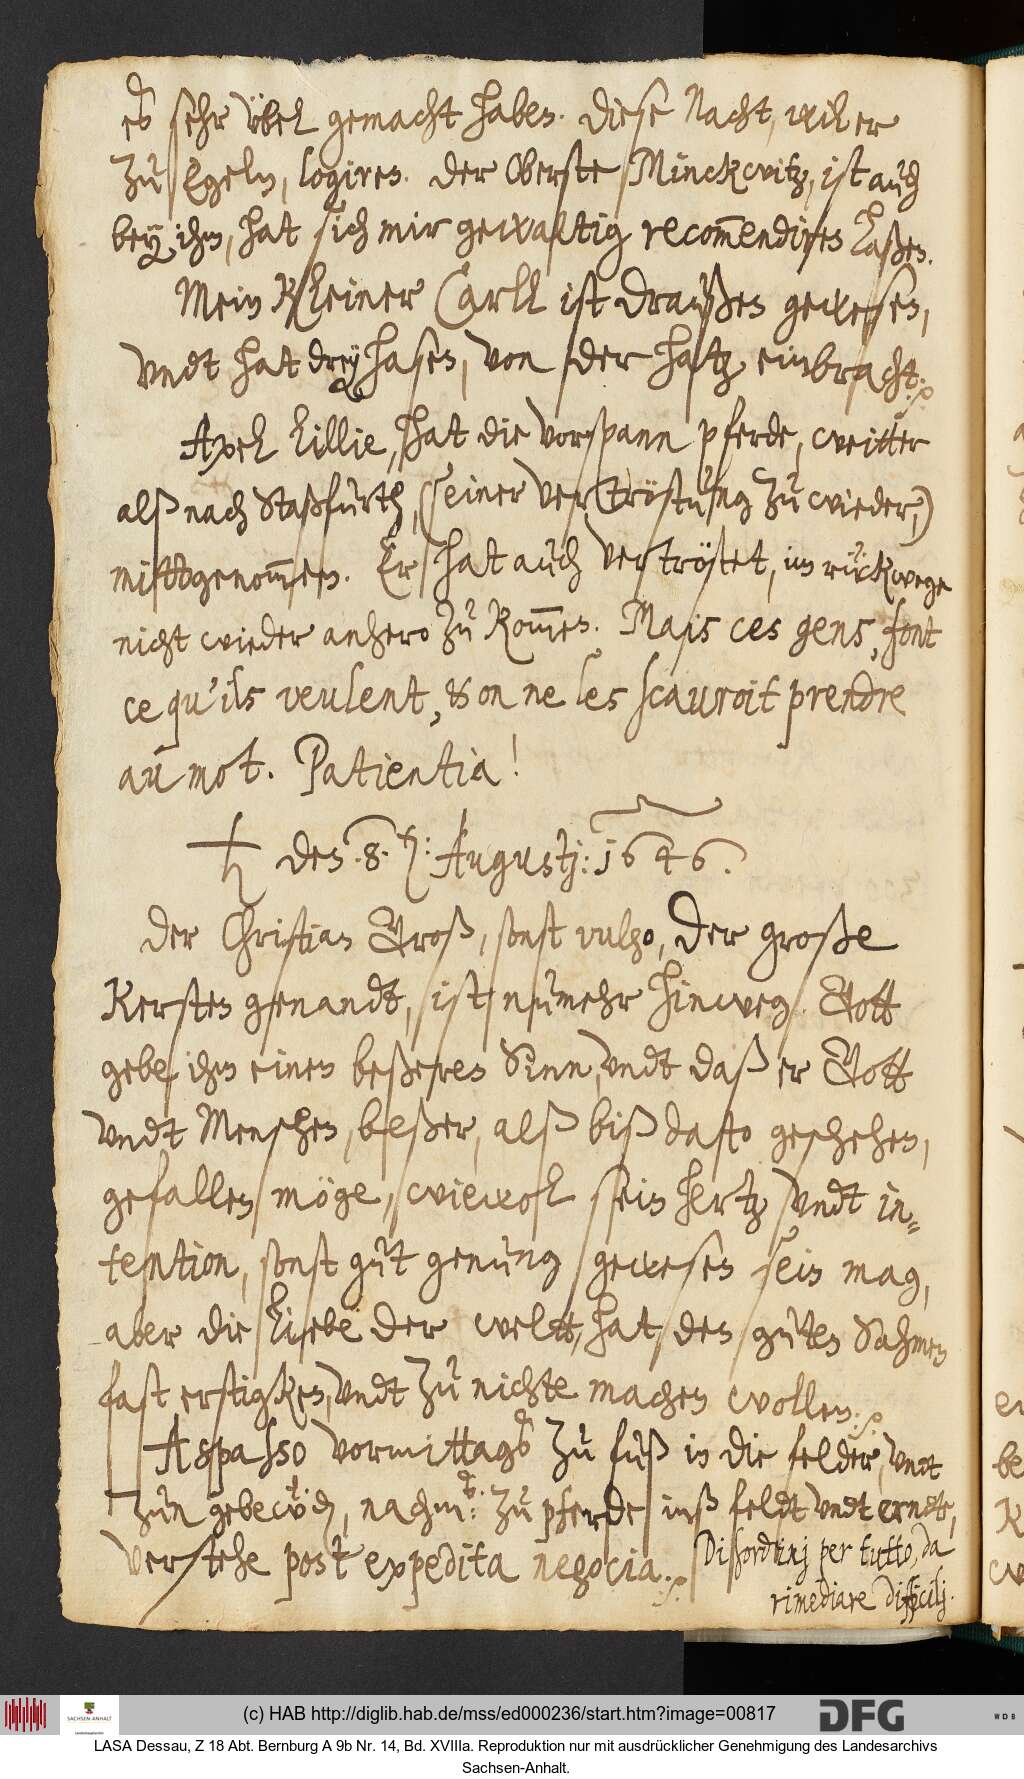 es sehr übel gemacht haben. Diese Nacht, will er
zu Egeln, logiren. Der Oberste Minckwitz, ist auch
bey ihm, hat sich mir gewaltig recom̅endiren laßen.
Mein kleiner Carll ist draußen gewesen,
vndt hat drey hasen, von der hatz, einbracht.
Axel Lillie, hat die vorspann pferde, weitter
alß nach Staßfurth, (seiner vertröstung zu wieder,)
mittgenom̅en. Er hat auch vertröstet, im rückwege
nicht wieder anhero zu kom̅en. Mais ces gens, font
ce qu'ils veulent, & on ne les scauroit prendre
au mot. Patientia!
♄ den .8. Augustj: 1646.
Der Christian Groß, sonst vulgo, der große
Kersten genandt, ist numehr hinweg. Gott
gebe ihm einen beßeren Sinn, vndt daß er Gott
vndt Menschen, beßer, alß biß dato geschehen,
gefallen möge, wiewol sein hertz vndt in=
tention, sonst gut genung gewesen sein mag,
aber die Liebe der weltt, hat den guten Sahmen
fast erstigken, vndt zu nichte machen wollen.
A spasso vormittags zu fuß in die felder, vndt
zun gebewden, nachm: zu pferde inß feldt vndt erndte,
verstehe post expedita negocia. Disordinj per tutto, da
rimediare difficilj.
(c) HAB http://diglib.hab.de/mss/ed000236/start.htm?image=00817
SACHSEN-ANHALT
DFG
WDB
LASA Dessau, Z 18 Abt. Bernburg A 9b Nr. 14, Bd. XVIIIa. Reproduktion nur mit ausdrücklicher Genehmigung des Landesarchivs
Sachsen-Anhalt.